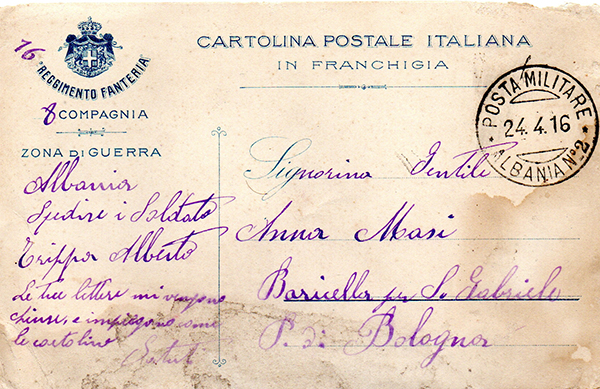 16
REGGIMENTO FANTERIA
8 COMPAGNIA
ZONA DI GUERRA
CARTOLINA POSTALE ITALIANA
IN FRANCHIGIA
POSTA MILITARE
24.4.16
ALBANIA N° 2
Signorina Gentile
Anna Masi
Baricella per S. Gabriele
P. di Bologna
Albania
Spedire i Soldato
Trippa Alberto
Le tue lettere mi vengono
chiuse, e impiegono come
le cartoline